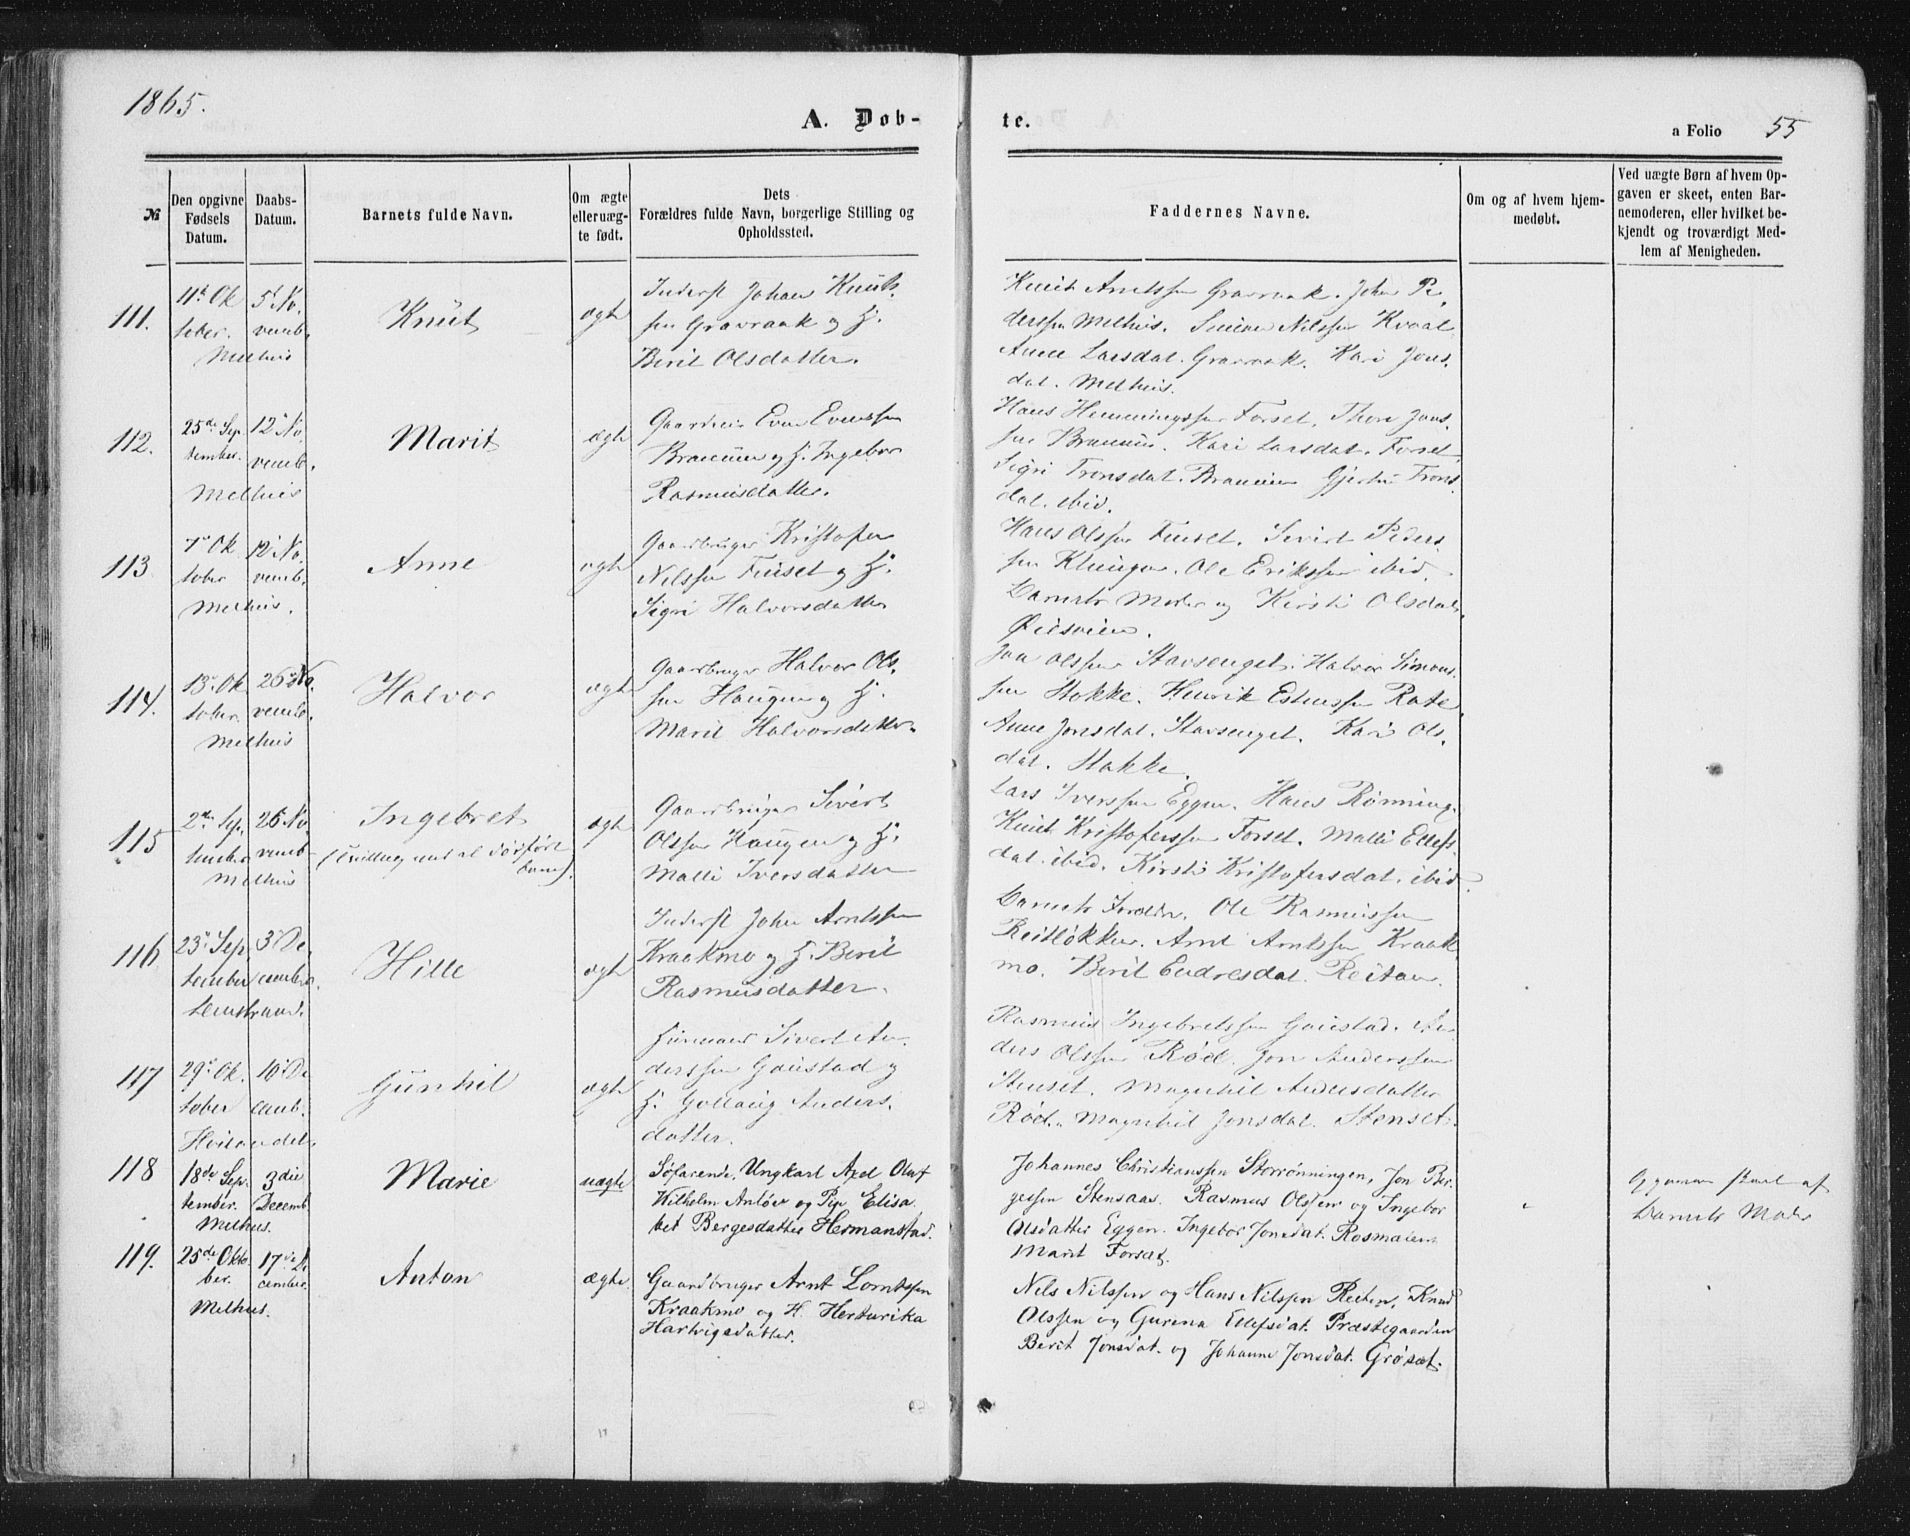 1865.
A. Døb-
te.
a Folio 55
№
Den opgivne Fødsels Datum.
Daabs-Datum.
Barnets fulde Navn.
Om ægte eller uæg-te født.
Dets Forældres fulde Navn, borgerlige Stilling og Opholdssted.
Faddernes Navne.
Om og af hvem hjem-medøbt.
Ved uægte Børn af hvem Op-gaven er skeet, enten Bar-nemoderen, eller hvilket be-kjendt og troværdigt Med-lem af Menigheden.
111.
11te Ok
tober.
Melhus
5te No,
vemb.
Knut
ægte
Inderst Johan Knuts,
sen Gravraak og H.
Berit Olsdatter.
Knut Arntssen Gravraak. John Pe,
derssen Melhus. Nilssen Kvaal
Anne Larsdat. Gravraak. Kari Jons,
dat. Melhus.
112.
25de Sep
tember.
Melhus
12te No,
vemb.
Marit
ægte
Gaardbr. Even Evenssen
og H. Ingebor
Rasmusdatter.
Hans Hemmingssen Forset. Thore Jons,
sen Kari Larsdat. Forset
Sigri Tronsdat. Gjertru Trons
dat. ibid.
113
7de Ok
tober
Melhus.
12te No,
vemb.
Anne
ægte
Gaardbruger Kristofer
Nilssen og H.
Sigri Halvorsdatter
Hans Olssen Sivert Peders
sen Klungen. Ole Erikssen ibid.
Barnets Moder og Kirsti Olsdat.
Øiesveien.
114.
13de Ok
tober.
Melhus
26de No.
vemb.
Halvor
ægte
Gaardbruger Halvor Ols,
sen Haugen og H.
Marit Halvorsdatter.
Jon Olssen Stavsenget. Halvor Simons
sen Stokke. Henrik Estenssen Rate
Anne Jonsdat. Stavsenget. Kari Ols,
dat. Stokke.
115
2den Sep.
tember
Melhus
26 No.
vemb
Ingebret
(Tvilling med et dødfødt
barn).
ægte
Gaardbruger Sivert
Olssen Haugen og H.
Malli Iversdatter
Lars Iverssen Eggen. Hans Rønning,
Knut Kristoferssen Forset. Malli Ellefs
dat. ibid. Kirsti Kristofersdat. ibid.
116
23de Sep
tember
Leinstrand.
3de De,
cember
Hille
ægte
Inderst John Arntssen
Kraakmo og H. Berit
Rasmusdatter.
Barnets Forældre. Ole Rasmussen
Reitløkken. Arnt Arntssen Kraak
mo. Berit Endresdat. Reitan.
117
29de Ok.
tober
10de De
cemb.
Gunhil
ægte
Sivert An,
derssen Gaustad og
H. Gollaug Anders,
datter.
Rasmus Ingebretssen Gaustad. An
ders Olssen Rød. Jon Anderssen
Stenset. Magnhil Andersdatter
Rød. Magnhil Jonsdat. Stenset.
118
18de Sep.
tember.
Melhus.
3die
Decemb.
Marie
uægte
Søfarende, Ungkarl Axel Oluf
Wilhelm Anløw og Pige Elisa,
bet Bergesdatter Hermanstad.
Johannes Christianssen Storrønningen, Jon Ber,
gessen Stensaas. Rasmus Olssen og Ingebor
Olsdatter Eggen. Ingebor Jonsdat. Rosmælen
Marit Forset.
Opgaven skeet af
Barnets Moder
119.
25de Okto
ber.
Melhus.
17de De
cember.
Anton
ægte.
Gaardbruger Arnt Lorntssen
Kraakmo og H. Henrurika
Hartvigsdatter.
Nels Nilssen og Hans Nilssen Reiten, Knud
Olssen og Gurina Ellefsdat. Præstegaarden
Berit Jonsdat. og Johanne Jonsdat. Grøset.